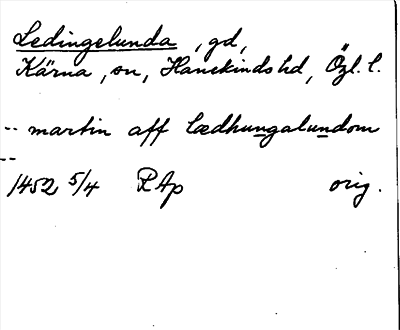 Ledingelunda, gd,
Kärna, sn, Hanekinds hd, Ögl. l.
-- martin aff lædhungalundom
--
1452 5/4 RAp orig.